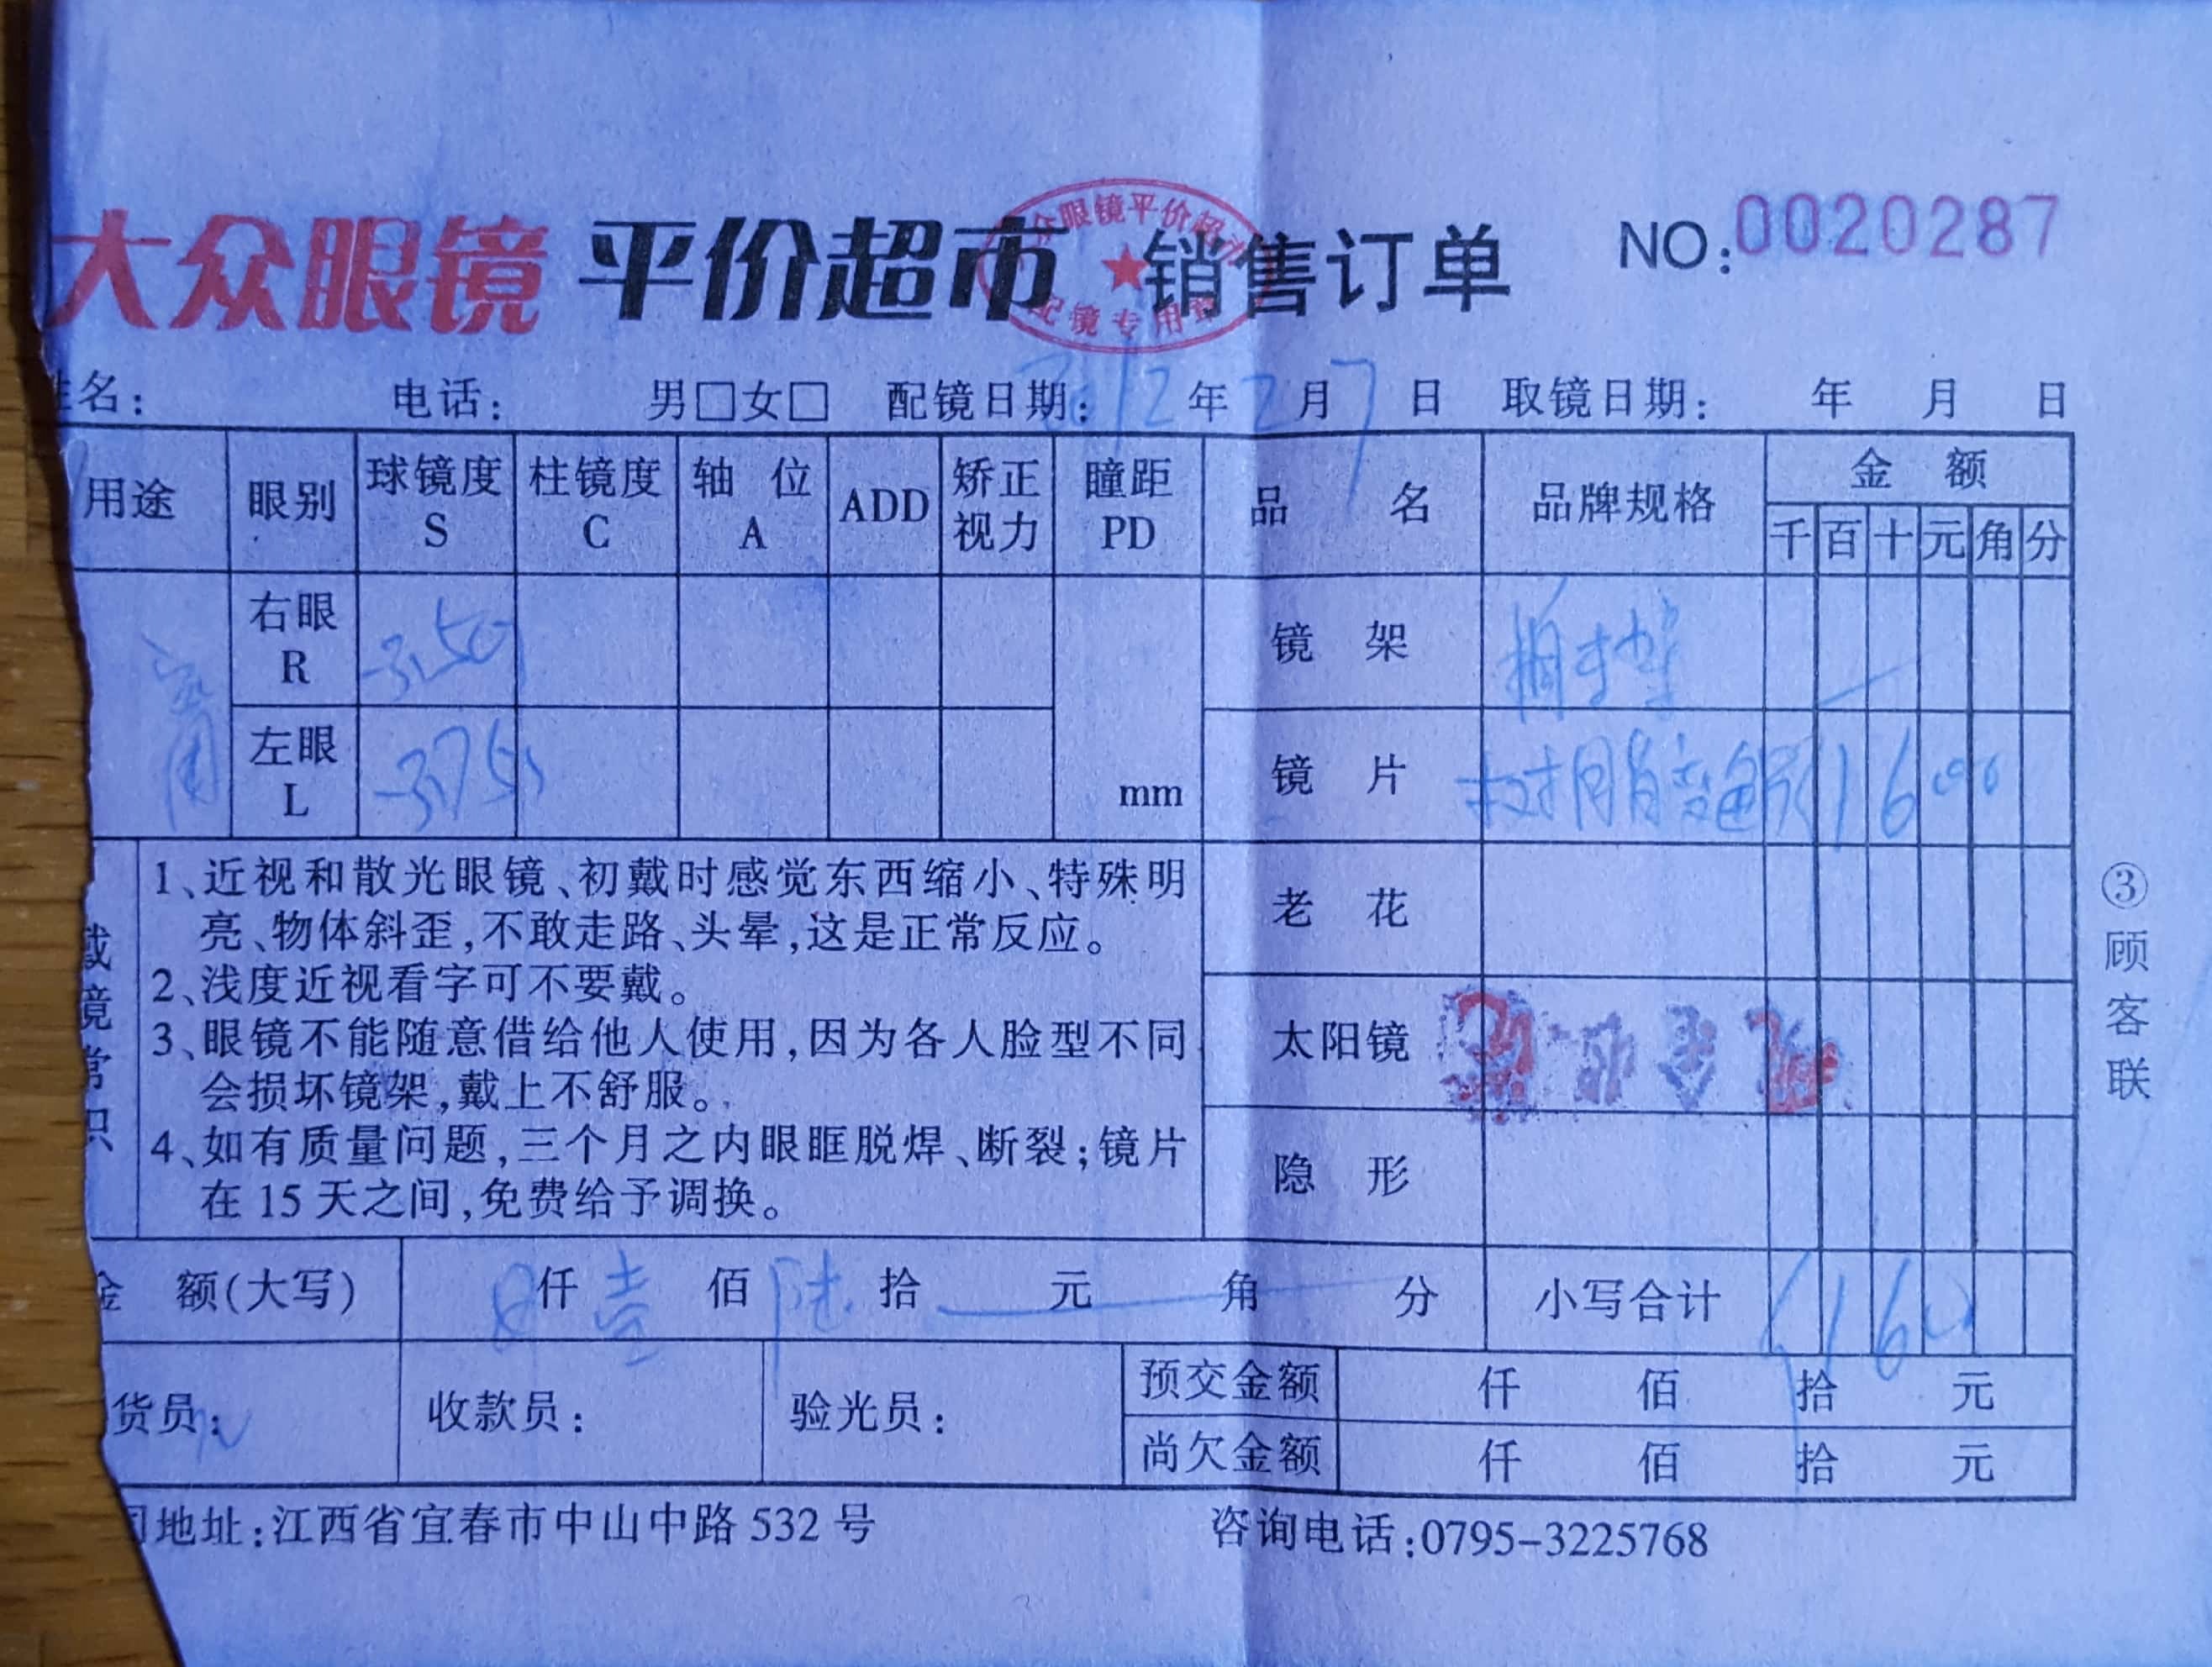 大众眼镜 平价超市 销售订单 NO:0020287
众眼镜平价超市
配镜专用章
姓名: 电话: 男□女□ 配镜日期: 2012年2月7日 取镜日期: 年 月 日
用途 眼别 球镜度 S 柱镜度 C 轴位 A ADD 矫正视力 瞳距 PD 品名 品牌规格 金额
千 百 十 元 角 分
右眼 R -3.50 镜架
左眼 L -3.75 mm 镜片 树脂变色 160
老花
太阳镜
隐形
戴镜常识
1、近视和散光眼镜、初戴时感觉东西缩小、特殊明
亮、物体斜歪,不敢走路、头晕,这是正常反应。
2、浅度近视看字可不要戴。
3、眼镜不能随意借给他人使用,因为各人脸型不同
会损坏镜架,戴上不舒服。
4、如有质量问题,三个月之内眼眶脱焊、断裂;镜片
在15天之间,免费给予调换。
金额(大写) 仟壹佰陆拾 元 角 分 小写合计 160
货员: 收款员: 验光员: 预交金额 仟 佰 拾 元
尚欠金额 仟 佰 拾 元
地址:江西省宜春市中山中路532号 咨询电话:0795-3225768
③顾客联